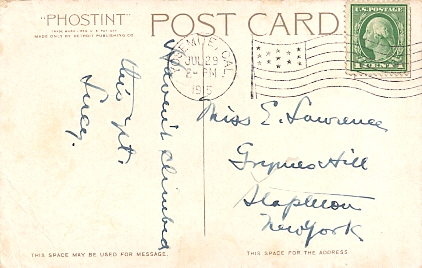 "PHOSTINT"
MADE ONLY BY DETROIT PUBLISHING CO.
POST CARD
U.S. POSTAGE
1 CENT 1
YOSEMITE, CAL.
JUL 29
2-PM
1915
Haven't climbed
this yet.
Lucy.
Miss E. Lawrence
Grymes Hill
Stapleton
New York
THIS SPACE MAY BE USED FOR MESSAGE.
THIS SPACE IS FOR THE ADDRESS